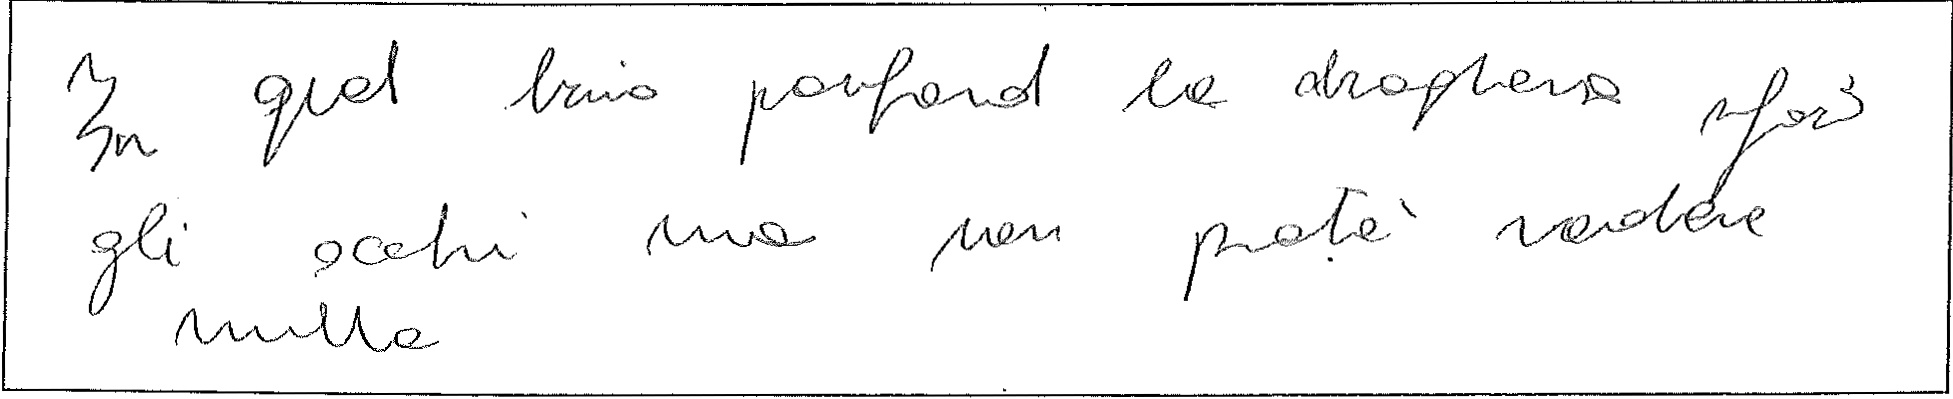 In quel buio profond la droghera sforò
gli occhi ma non potè vedere
nulla